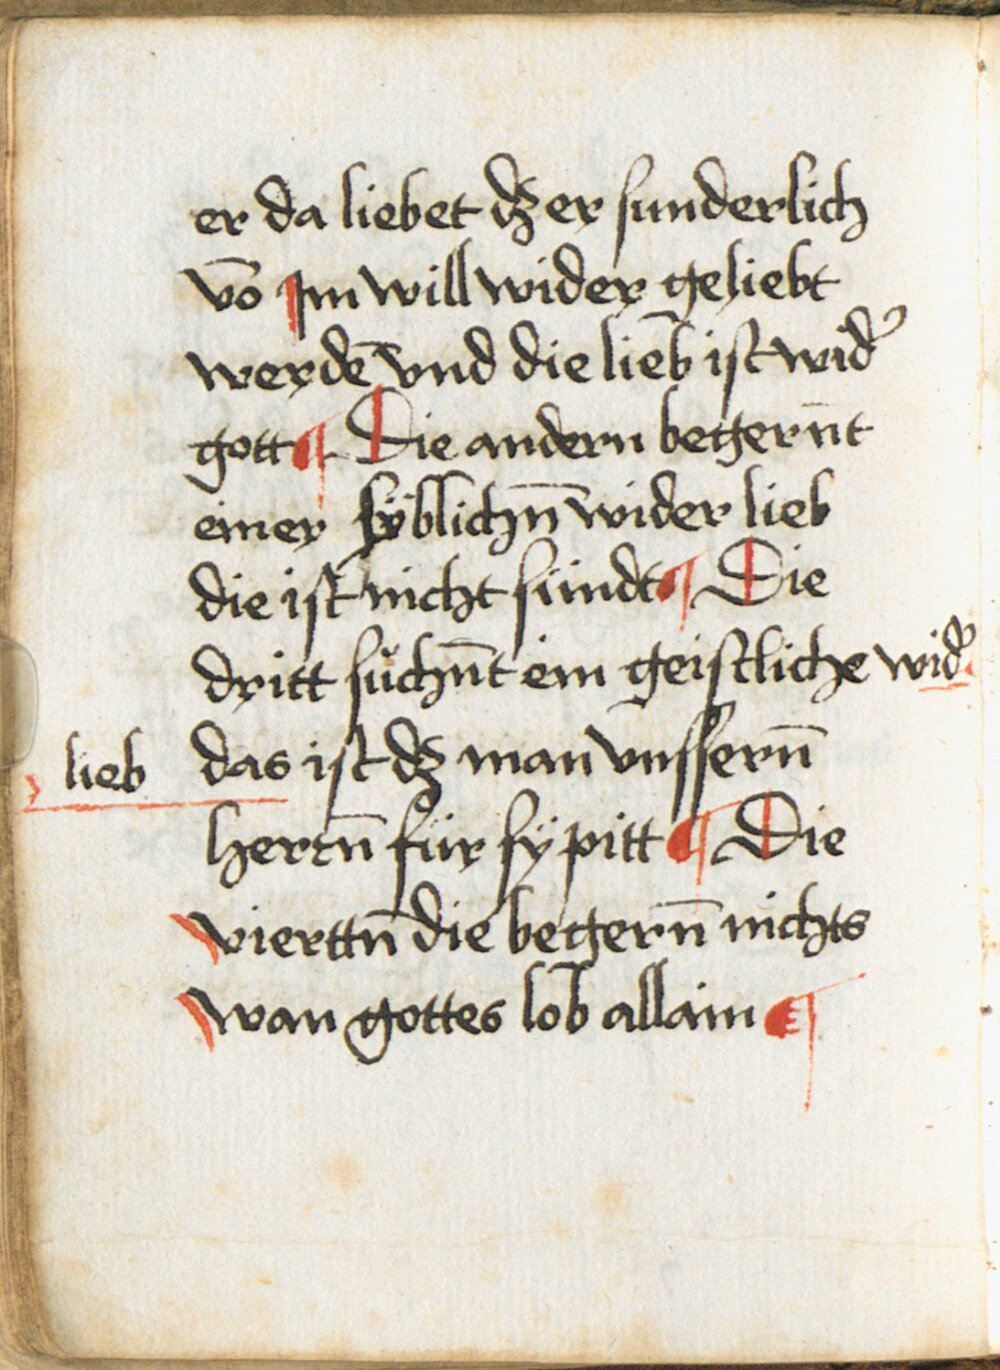 er da liebet dz er sunderlich
vō Im will wider geliebt
werdē vnd die lieb ist wid᷑
gott ¶ Die andern begern̄t
einer sÿblichn̄ wider lieb
die ist nicht sündt ¶ Die
dritt sůchn̄t ein geistliche wid᷑
lieb das ist dz man vnssern̄
herrn̄ für sÿ pitt ¶ Die
vierttn̄ die begern̄ nichts
wan gottes lob allain ¶